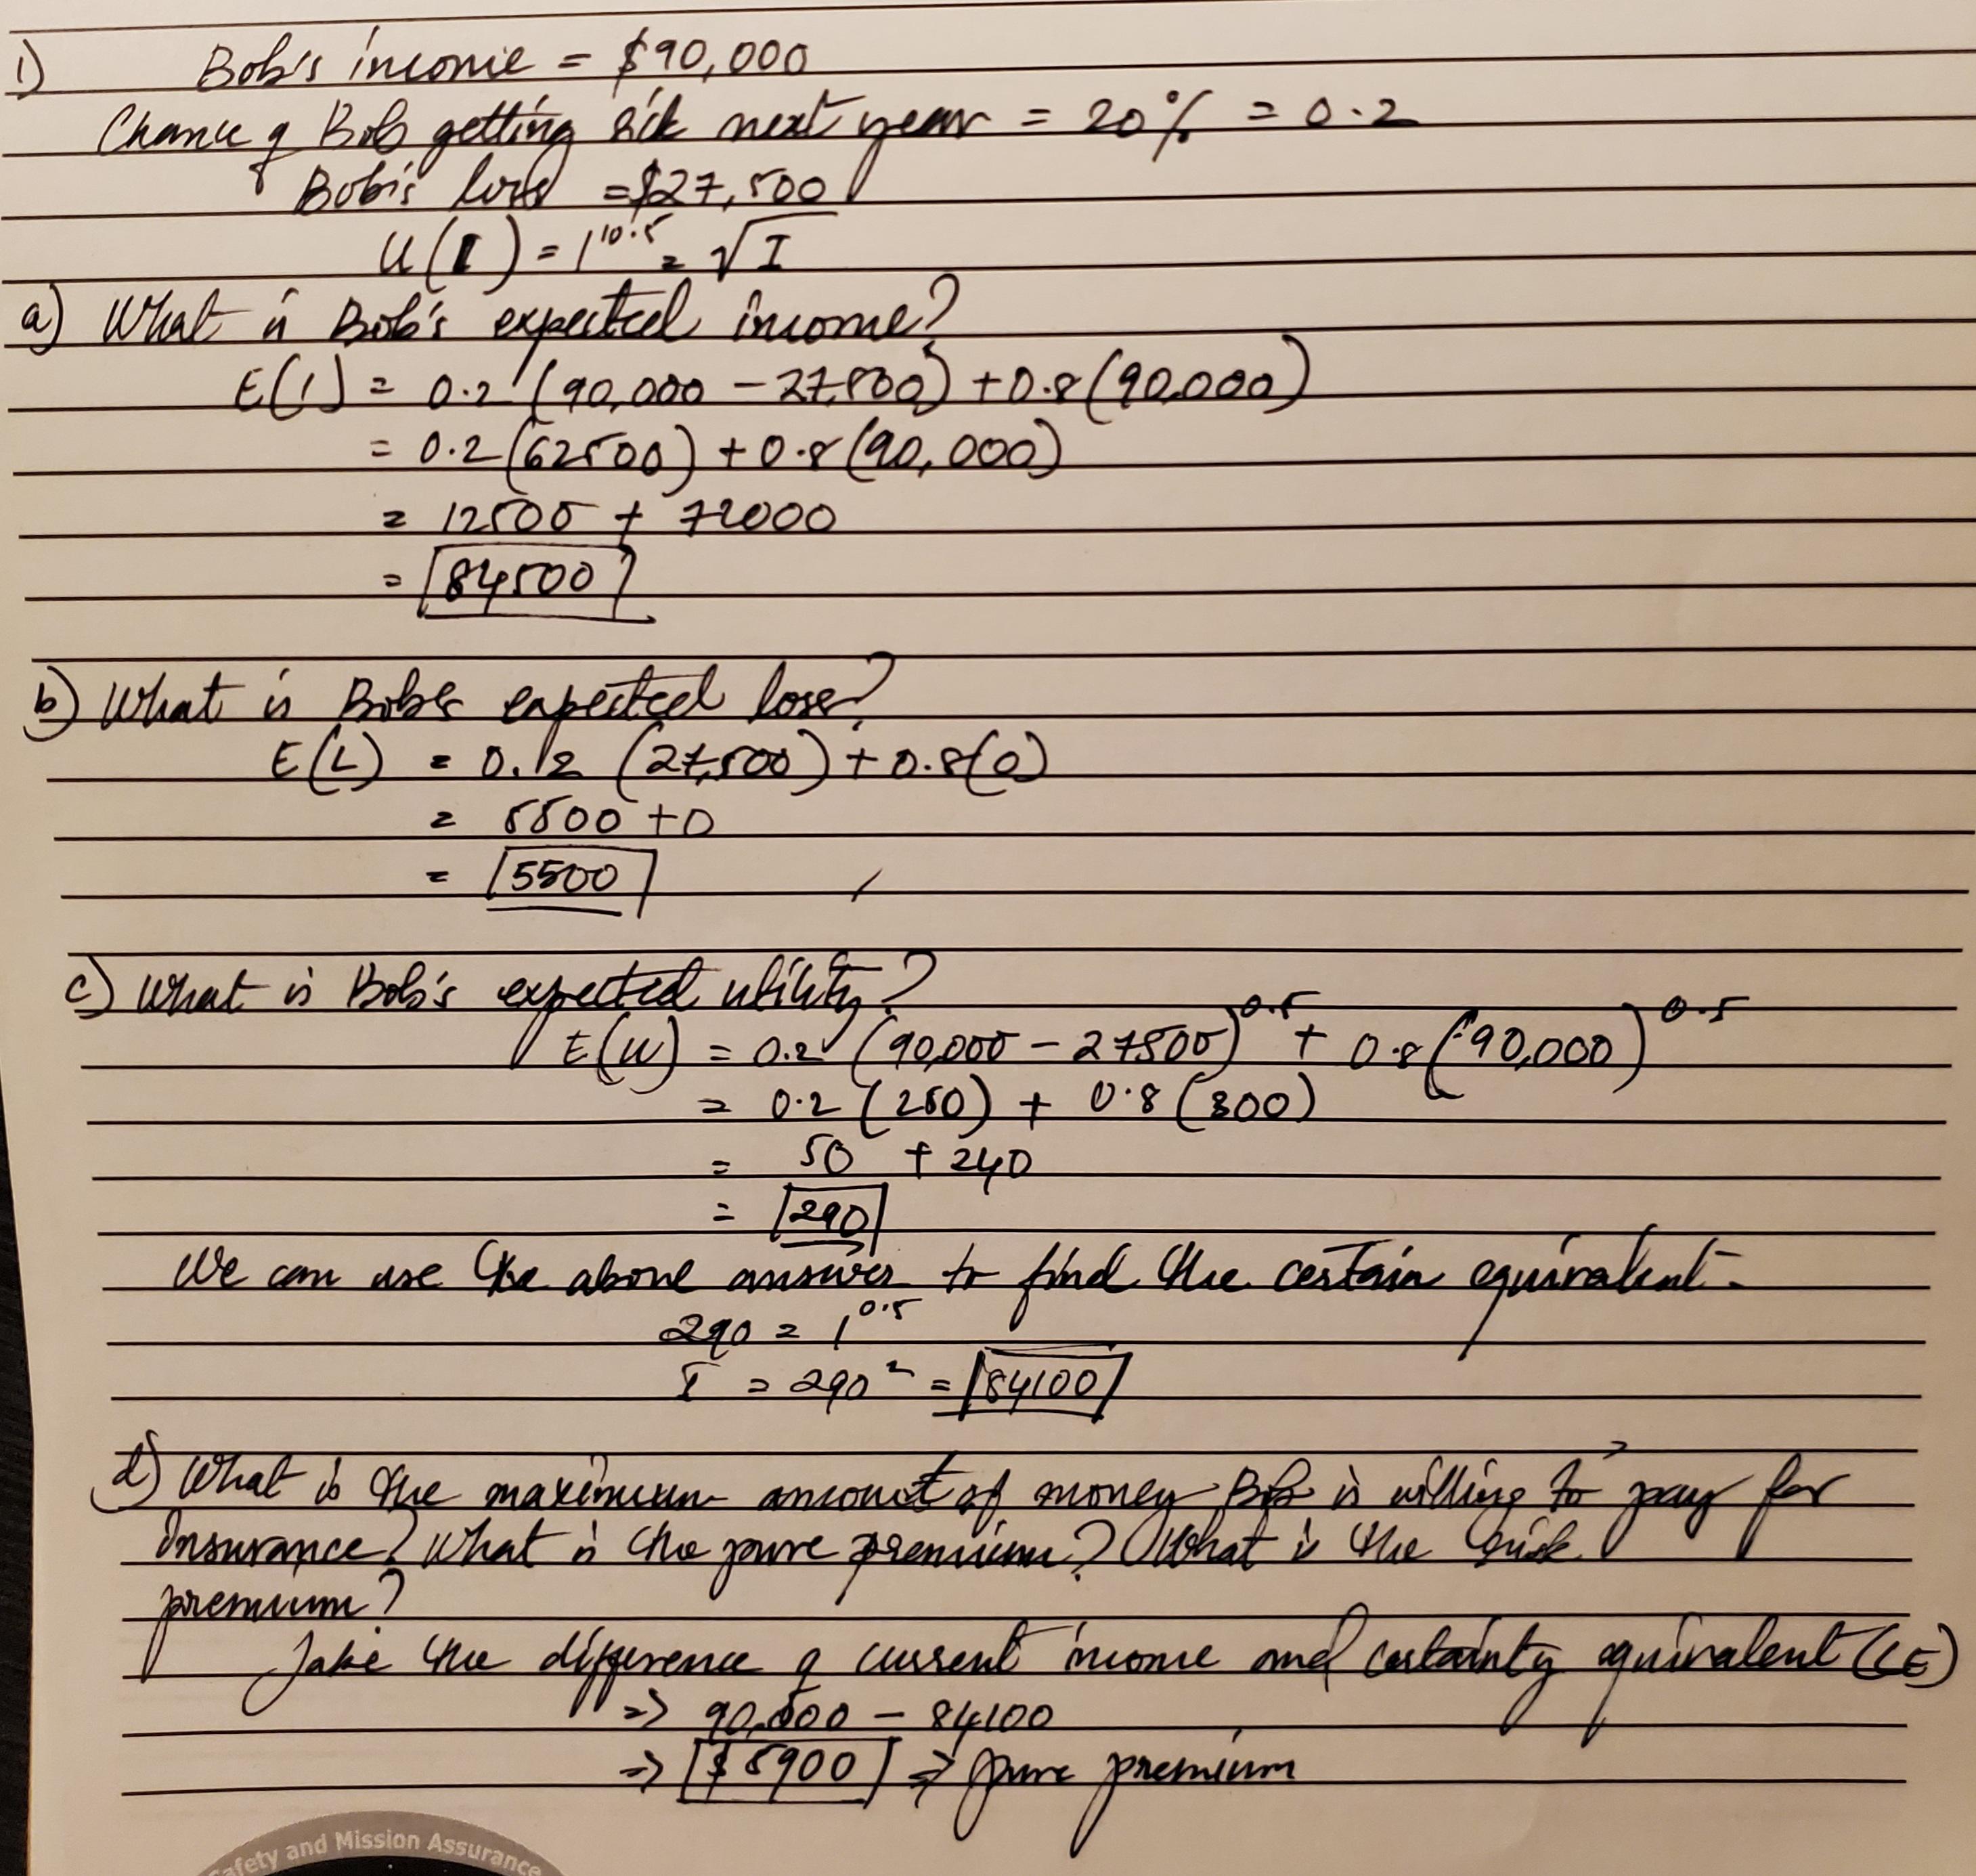 1) Bob's income = $90,000
Chance of Bob getting sick next year = 20% = 0.2
Bob's loss = $27,500
U(I) = I^0.5 = √I
a) What is Bob's expected income?
E(I) = 0.2 (90,000 - 27,500) + 0.8 (90,000)
= 0.2 (62500) + 0.8 (90,000)
= 12500 + 72000
= 84500
b) What is Bob's expected loss?
E(L) = 0.2 (27,500) + 0.8(0)
= 5500 + 0
= 5500
c) What is Bob's expected utility?
E(U) = 0.2 (90,000 - 27500)^0.5 + 0.8 (90,000)^0.5
= 0.2 (250) + 0.8 (300)
= 50 + 240
= 290
We can use the above answer to find the certain equivalent.
290 = I^0.5
I = 290² = 84100
d) What is the maximum amount of money Bob is willing to pay for
Insurance? What is the pure premium? What is the risk
premium?
Take the difference of current income and certainty equivalent (CE)
=> 90,000 - 84100
=> $5900 => pure premium
Safety and Mission Assurance